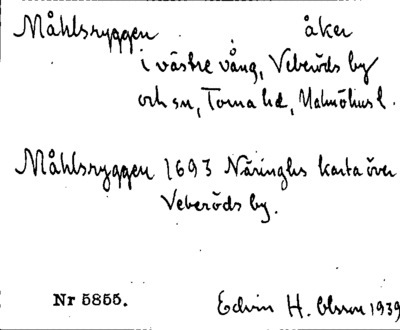 Måhlsryggen åker
i västre vång, Veberöds by
och sn, Torna hd, Malmöhus l.
Måhlsryggen 1693 Näringhs karta över
Veberöds by.
Nr 5855. Edvin H. Olsson 1939